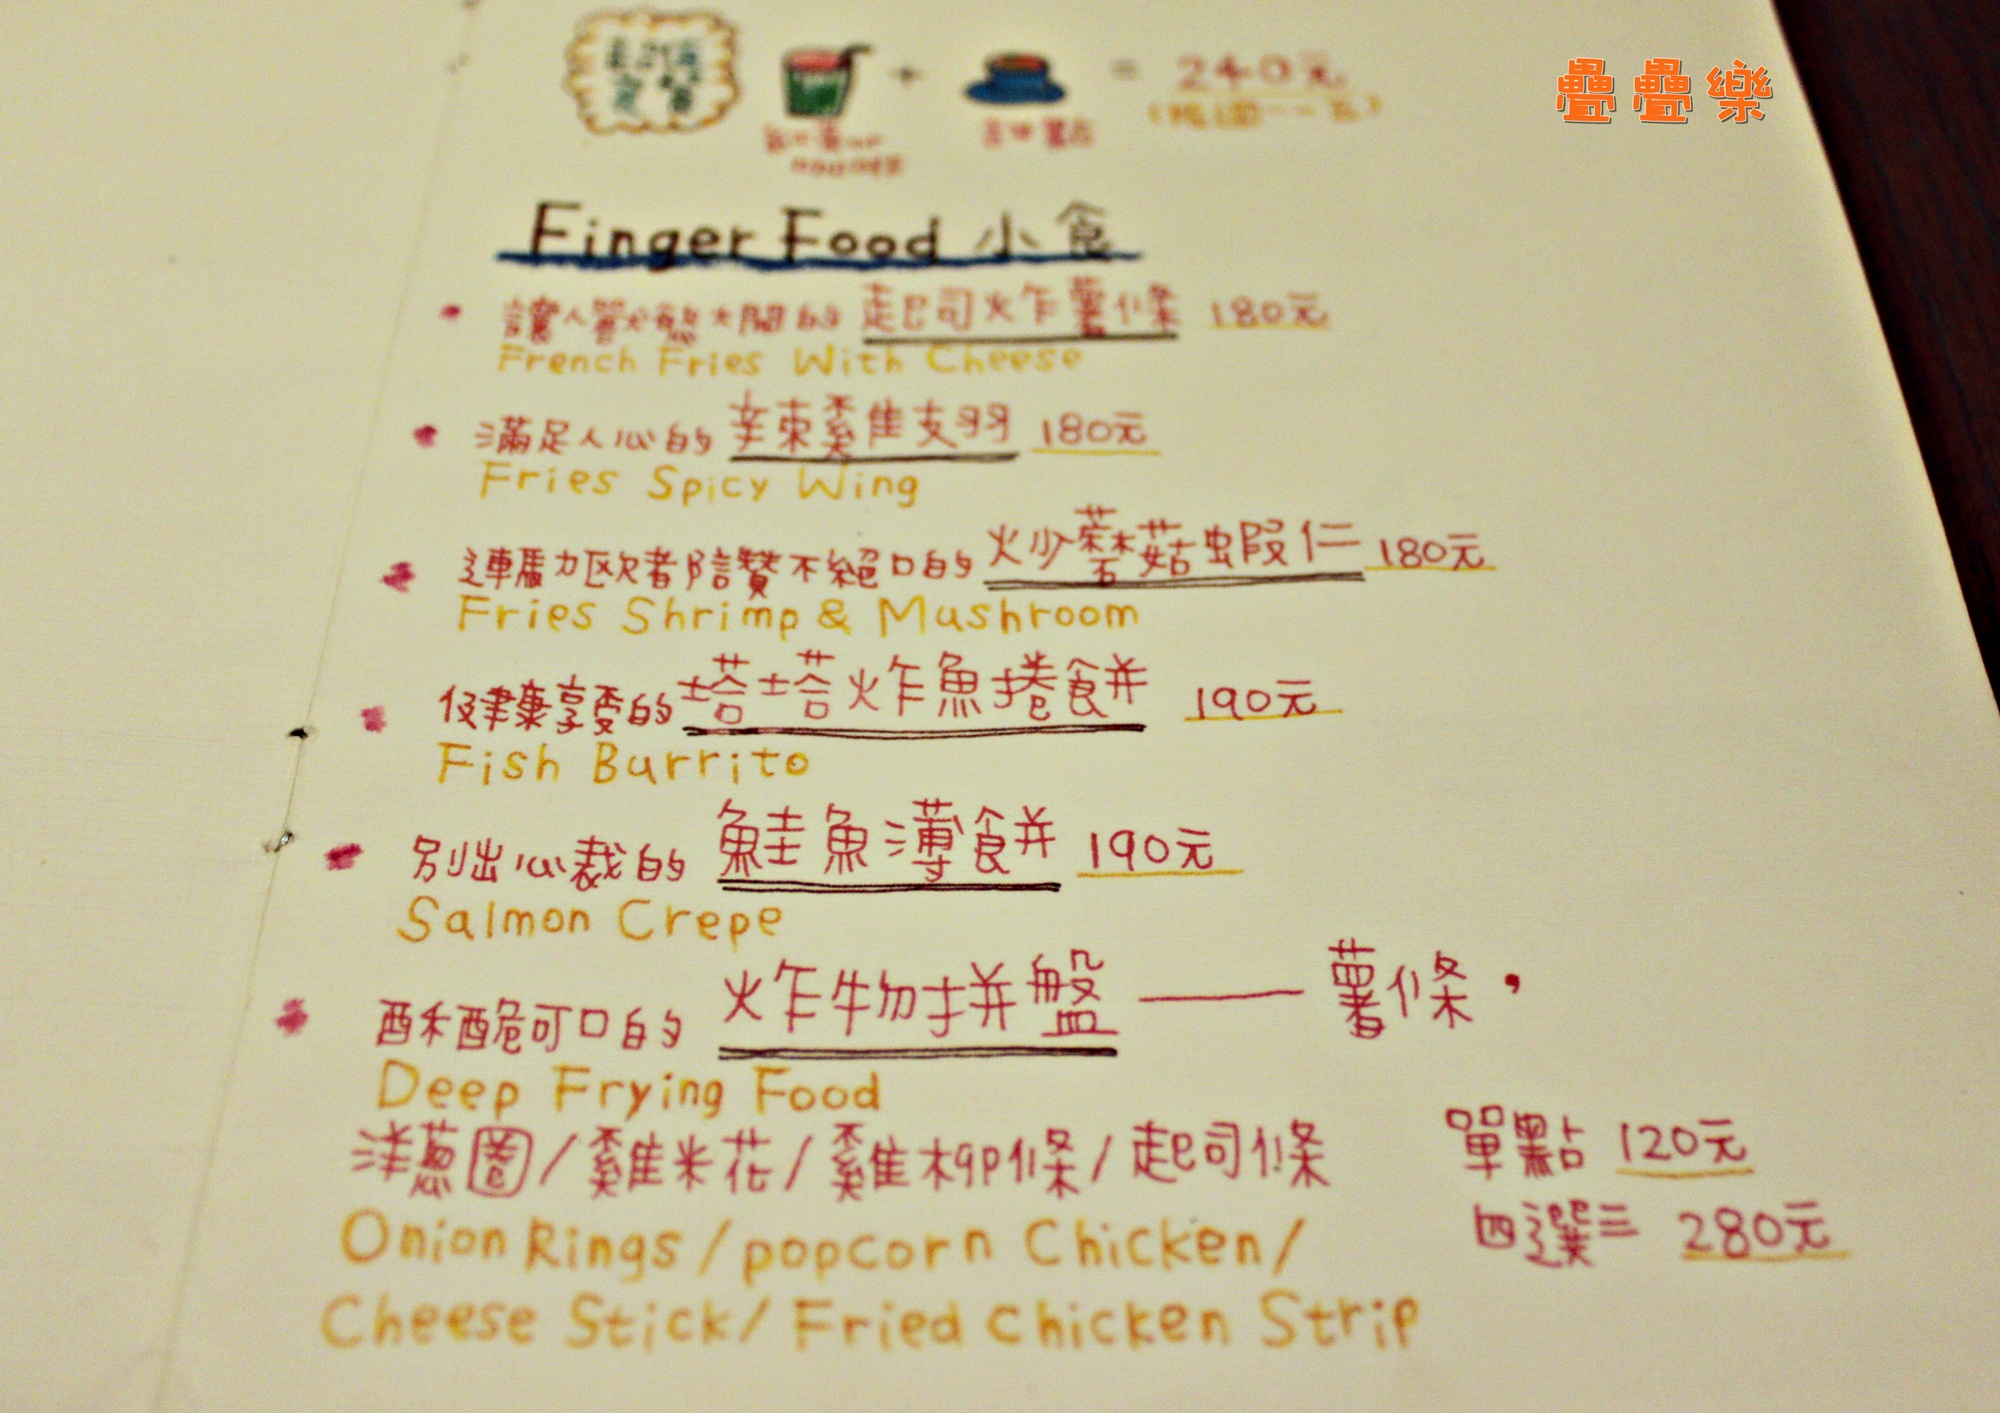 疊疊樂
= 240元
Finger Food 小食
讓人食慾大開的 起司炸薯條 180元
French Fries With Cheese
滿足人心的 辛辣雞翅 180元
Fries Spicy Wing
連馬力歐都讚不絕口的 炒蘑菇蝦仁 180元
Fries Shrimp & Mushroom
健康享受的 塔塔炸魚捲餅 190元
Fish Burrito
別出心裁的 鮭魚薄餅 190元
Salmon Crepe
酥脆可口的 炸物拼盤 — 薯條,
Deep Frying Food
洋蔥圈/雞米花/雞柳條/起司條 單點 120元
Onion Rings / popcorn Chicken/ 四選三 280元
Cheese Stick/ Fried chicken Strip